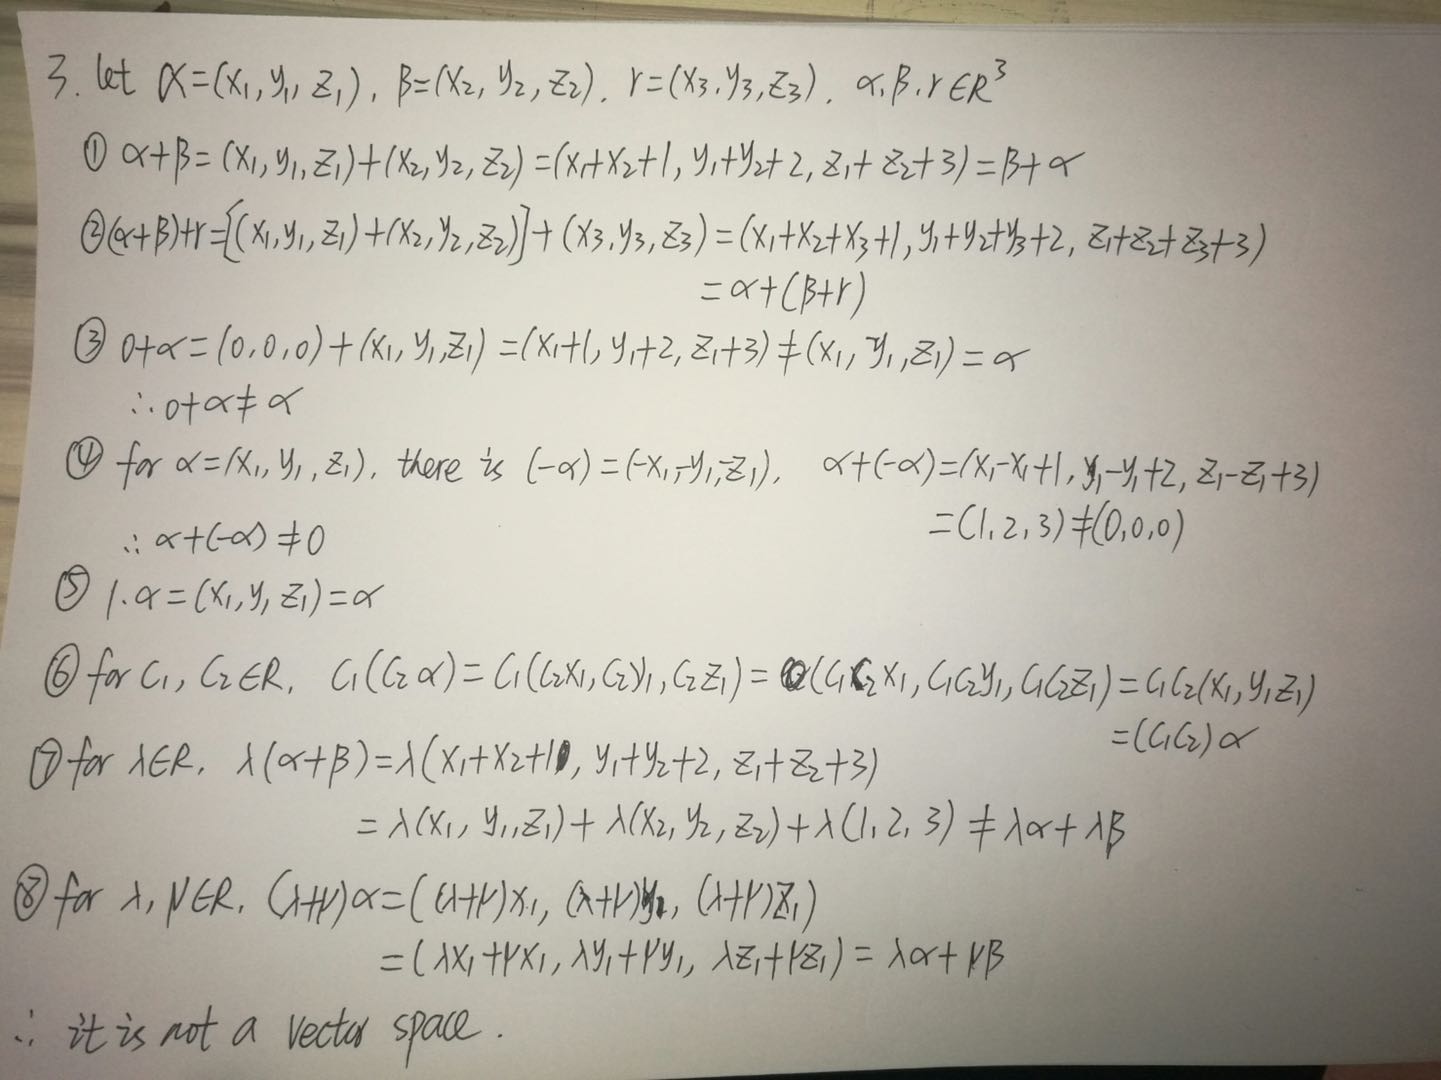 3. let α=(x₁,y₁,z₁), β=(x₂,y₂,z₂), r=(x₃,y₃,z₃), α,β,r∈R³
① α+β=(x₁,y₁,z₁)+(x₂,y₂,z₂)=(x₁+x₂+1,y₁+y₂+2,z₁+z₂+3)=β+α
②(α+β)+r=[(x₁,y₁,z₁)+(x₂,y₂,z₂)]+(x₃,y₃,z₃)=(x₁+x₂+x₃+1,y₁+y₂+y₃+2,z₁+z₂+z₃+3)
=α+(β+r)
③ 0+α=(0,0,0)+(x₁,y₁,z₁)=(x₁+1,y₁+2,z₁+3)≠(x₁,y₁,z₁)=α
∴0+α≠α
④ for α=(x₁,y₁,z₁), there is (-α)=(-x₁,-y₁,-z₁), α+(-α)=(x₁-x₁+1,y₁-y₁+2,z₁-z₁+3)
=(1,2,3)≠(0,0,0)
∴ α+(-α)≠0
⑤ 1·α=(x₁,y₁,z₁)=α
⑥ for C₁, C₂∈R, C₁(C₂α)=C₁(C₂x₁,C₂y₁,C₂z₁)=(C₁C₂x₁,C₁C₂y₁,C₁C₂z₁)=C₁C₂(x₁,y₁,z₁)
=(C₁C₂)α
⑦ for λ∈R, λ(α+β)=λ(x₁+x₂+1,y₁+y₂+2,z₁+z₂+3)
=λ(x₁,y₁,z₁)+λ(x₂,y₂,z₂)+λ(1,2,3)≠λα+λβ
⑧ for λ,μ∈R, (λ+μ)α=((λ+μ)x₁,(λ+μ)y₁,(λ+μ)z₁)
=(λx₁+μx₁,λy₁+μy₁,λz₁+μz₁)=λα+μβ
∴ it is not a vector space.